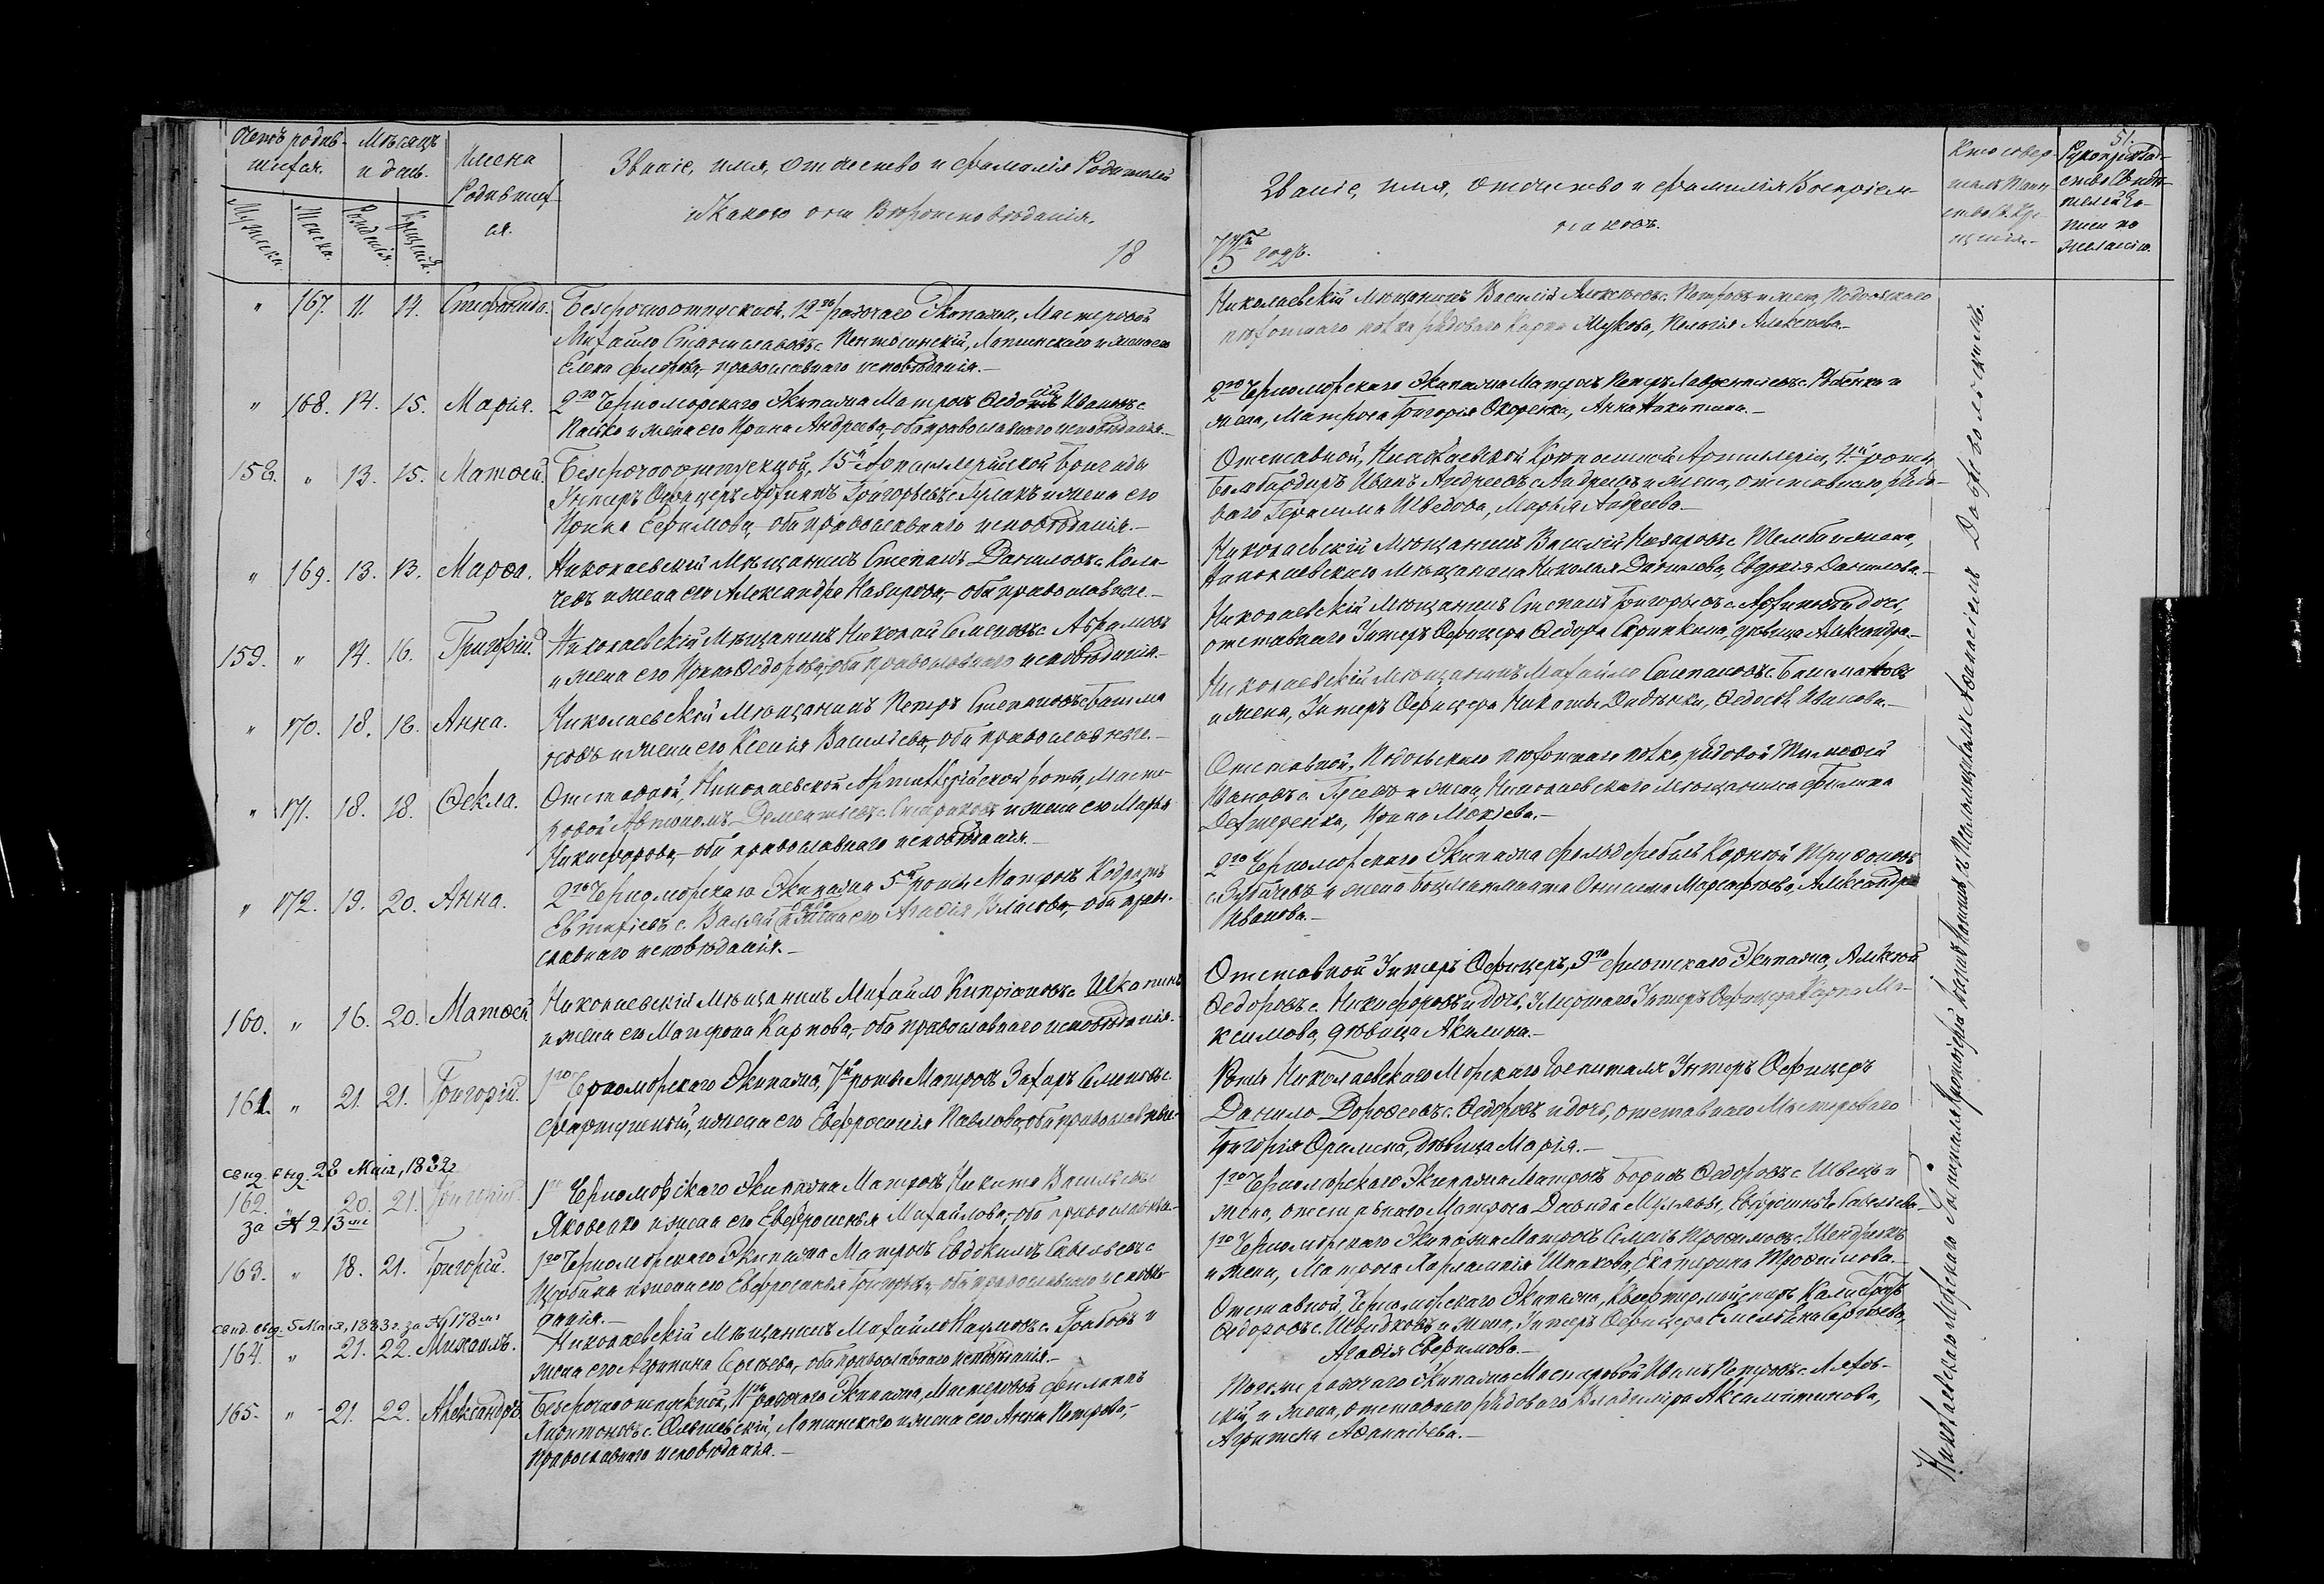 Счетъ родив-
шихся.
Мѣсяцъ
и день.
Имена
Родивших-
ся.
Мужеска.
Женска.
Рожденія.
Крещенія.
Званіе, имя, отчество и фамилія Родителей
и какого они Вѣроисповѣданія.
18
" 167. 11. 14. Стефанида. Безсрочноотпускной, 12го рабочаго Экипажа, Мастеровой
Михайло Станиславовъ с. Латинскаго и жена его
Елена православнаго исповѣданія.—
" 168. 14. 15. Марія. 2го Черноморскаго Экипажа Матросъ Ивановъ с.
и жена его Ирина Андреева, оба православнаго исповѣданія.—
158. " 13. 15. Матѳей. Безсрочноотпускной, 15й Артиллерійской Бригады
Унтеръ Офицеръ Григорьевъ с. и жена его
Ирина Ефимова, оба православнаго исповѣданія.—
" 169. 13. 13. Марѳа. Николаевскій Мѣщанинъ Степанъ Даниловъ с. Кола-
чевъ и жена его Александра Назарова, оба православные.—
159. " 14. 16. Николаевскій Мѣщанинъ Николай Семеновъ с. Абрамовъ
и жена его Ирина Ѳедорова, оба православнаго исповѣданія.—
" 170. 18. 18. Анна. Николаевскій Мѣщанинъ Петръ Степановъ с. Башма
ковъ и жена его Ксенія Васильева, оба православные.—
" 171. 18. 18. Ѳекла. Отставной, Николаевской Артиллерійской роты, Масте-
ровой Дементьевъ с. Стариковъ и жена его Марья
Никифорова, оба православнаго исповѣданія.—
" 172. 19. 20. Анна. 2го Черноморскаго Экипажа 5й роты Матросъ Кодратъ
Евтихіевъ с. и жена его Агафія Власова, оба право-
славнаго исповѣданія.—
160. " 16. 20. Матѳей Николаевскій Мѣщанинъ Михайло Кипріяновъ с. Шкапинъ
и жена его Матрона Карпова, оба православнаго исповѣданія.
161. " 21. 21. Григорій. 1го Черноморскаго Экипажа, 7й роты Матросъ Захаръ Семеновъ с.
Фартушный, и жена его Евфросинія Павлова, оба православные.
свид. выд. 28 Мая, 1832 г
162. " 20. 21. Григорій. 1го Черноморскаго Экипажа Матросъ Никита Васильевъ с.
за № 213 мъ
Яковенко и жена его Евфросинья Михайлова, оба православные.
163. " 18. 21. Григорій. 1го Черноморскаго Экипажа Матросъ Евдокимъ Савельевъ с
Щербина и жена его Евфросинья Григорьева, оба православнаго исповѣ-
данія.—
свид. выд. 5 Мая, 1883 г. за № 178 мъ
164. " 21. 22. Михаилъ. Николаевскій Мѣщанинъ Михайло Наумовъ с. Грибовъ и
жена его Агрипина Сергѣева, оба православнаго исповѣданія.—
165. " 21. 22. Александръ. Безсрочноотпускной, 11го рабочаго Экипажа, Мастеровой Филиппъ
Латинскаго и жена его Анна Петрова,
православнаго исповѣданія.—
51.
Званіе, имя, отчество и фамилія Воспріем-
никовъ.
годъ.
Кто совер-
шалъ Таин-
ство Св. Кре-
щенія.
Рукоприклад-
ство Свидѣ-
телей За-
писи по
желанію.
Николаевскій Мѣщанинъ Василій Алексѣевъ с. Петровъ и жена, Подольскаго
пѣхотнаго полка рядоваго Карпа Жукова, Пелагія Алексѣева.—
2го Черноморскаго Экипажа Матросъ Петръ Лаврентьевъ с. Рябенко и
жена, Матроса Григорія Анна Никитина.—
Отставной, Николаевской Крѣпостной Артиллеріи, 4й роты
Бомбардиръ Иванъ Андреевъ с. Андреевъ и жена, отставнаго рядо-
ваго Герасима Шведова, Марья Андреева.—
Николаевскій Мѣщанинъ Василій Назаровъ с. и жена,
Николаевскаго Мѣщанина Николая Данилова, Евдокія Данилова.—
Николаевскій Мѣщанинъ Степанъ Григорьевъ с. и дочь,
отставнаго Унтеръ Офицера Ѳедора Скрипкина, дѣвица Александра.—
Николаевскій Мѣщанинъ Михайло Степановъ с. Башмаковъ
и жена, Унтеръ Офицера Никиты Ѳедосья Иванова.—
Отставной, Подольскаго пѣхотнаго полка, рядовой Тимоѳей
Ивановъ с. Гусевъ и жена, Николаевскаго Мѣщанина Филипа
Дехтеренка, Ирина Мокіева.—
2го Черноморскаго Экипажа Корнѣй Трифоновъ
с. Зубачевъ и жена Боцманмата Александра
Иванова.—
Отставной Унтеръ Офицеръ, 9го флотскаго Экипажа, Алексѣй
Ѳедоровъ с. Никифоровъ и дочь, умершаго Унтеръ Офицера Карпа Ма-
ксимова, дѣвица Акилина.—
Роты Николаевскаго Морскаго Госпиталя Унтеръ Офицеръ
Данило Дороѳеевъ с. Ѳедоровъ и дочь, отставнаго Мастероваго
Григорія дѣвица Марія.—
1го Черноморскаго Экипажа Матросъ Борисъ Ѳедоровъ с. Швецъ и
жена, отставнаго Матроса Давида Савельева.—
1го Черноморскаго Экипажа Матросъ Семенъ Трофимовъ с.
и жена, Матроса Харлампія Шпакова, Екатерина Трофимова.—
Отставной, Черноморскаго Экипажа, Квартирмейстеръ Калистратъ
Ѳедоровъ с. Швидковъ и жена, Унтеръ Офицера Емельяна Сергѣева,
Агафія Ефимова.—
Тогоже рабочаго Экипажа Мастеровой Иванъ Петровъ с. Ляхов-
скій, и жена, отставнаго рядоваго Владиміра Аксамитникова,
Афанасьева.—
Николаевскаго Морскаго Госпиталя